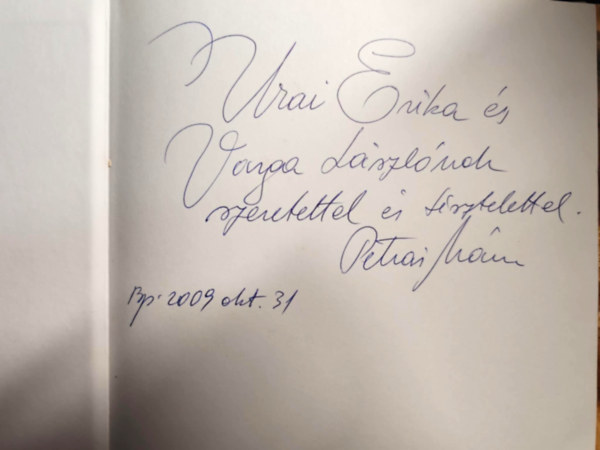 Urai Erika és
Varga Lászlónak
szeretettel és tisztelettel.
Pétrai
Bp. 2009 okt. 31